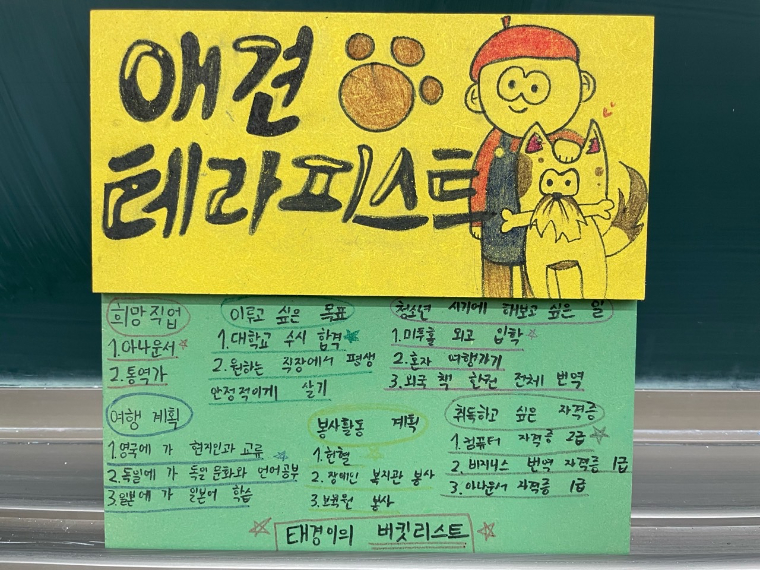 애견
테라피스트
희망직업
1.아나운서
2.통역가
이루고 싶은 목표
1.대학교 수시 합격
2.원하는 직장에서 평생
안정적이게 살기
청소년 시기에 해보고 싶은 일
1.미추홀 외고 입학
2.혼자 여행가기
3.외국 책 한권 전체 번역
여행 계획
1.영국에 가 현지인과 교류
2.독일에 가 독일 문화와 언어공부
3.일본에 가 일본어 학습
봉사활동 계획
1.헌혈
2.장애인 복지관 봉사
3.보육원 봉사
취득하고 싶은 자격증
1.컴퓨터 자격증 2급
2.비지니스 번역 자격증 1급
3.아나운서 자격증 1급
태경이의 버킷리스트